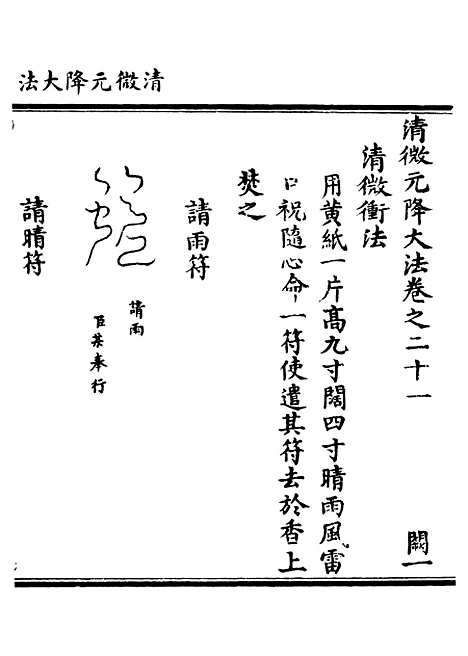 清微元降大法
清微元降大法卷之二十一　闕一
清微衝法
用黄紙一片高九寸闊四寸晴雨風雷
口祝隨心命一符使遣其符去於香上
焚之
請雨符
請雨
臣某奉行
請晴符